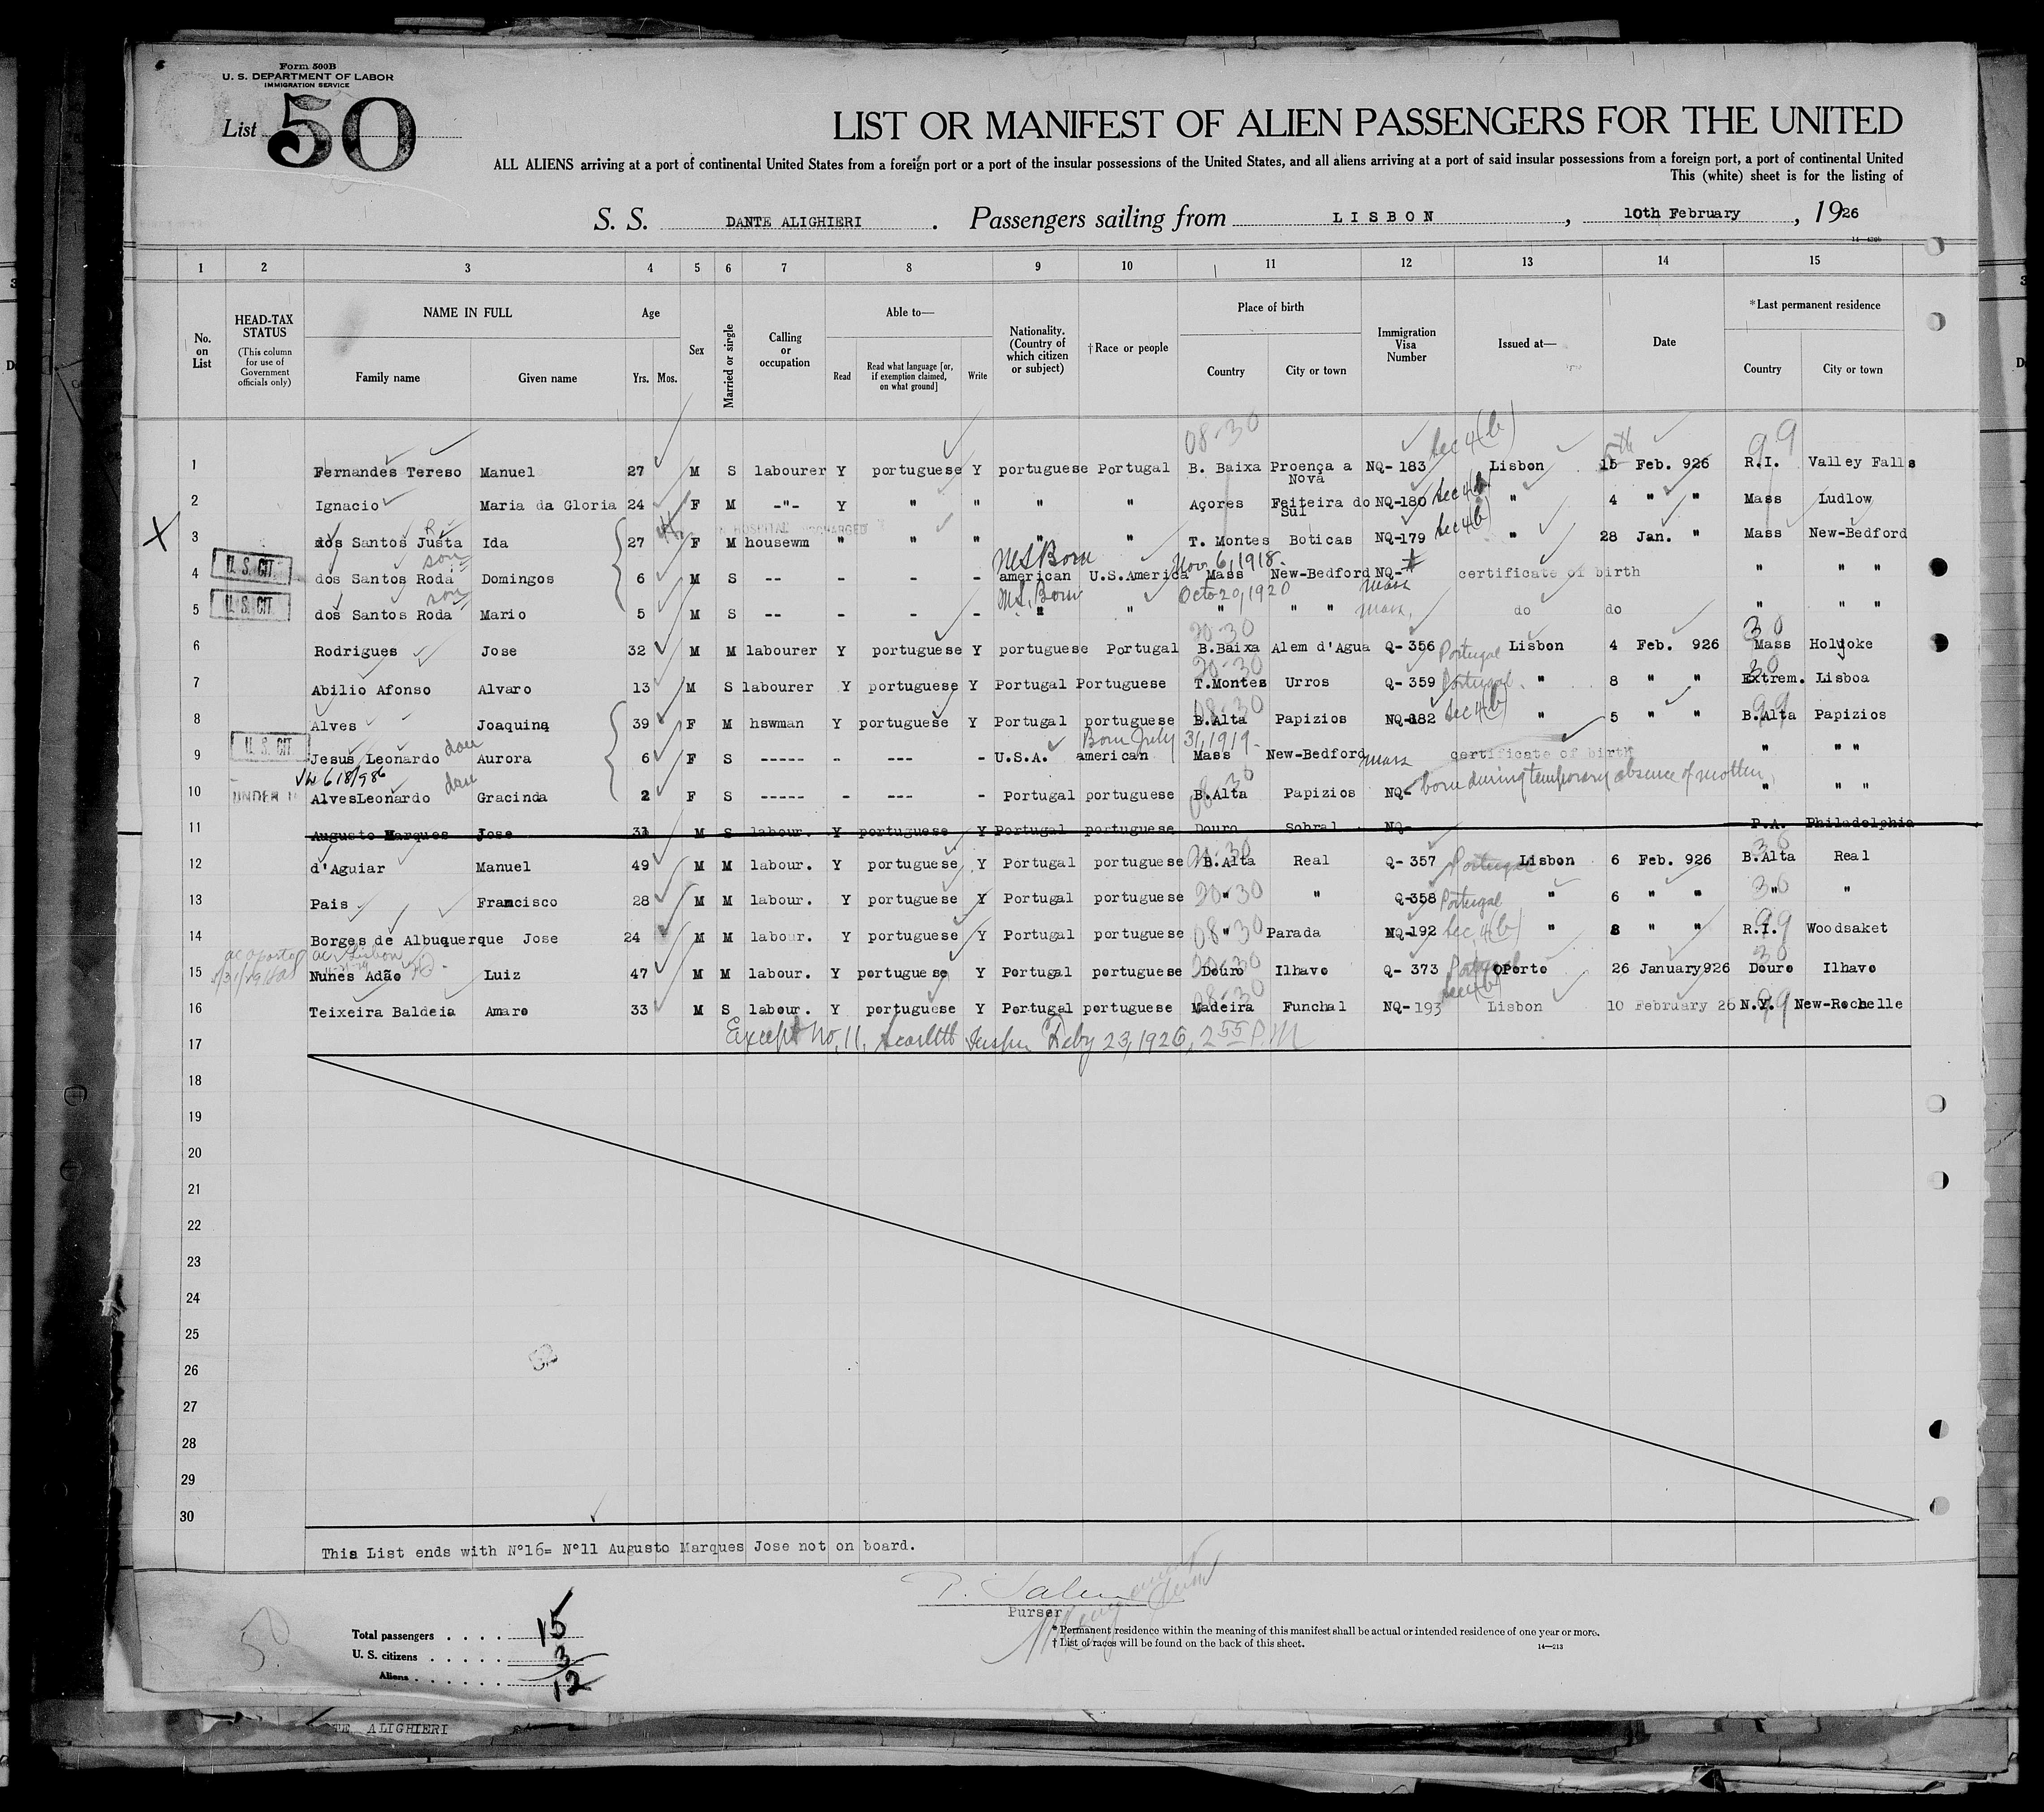 Form 500B
U. S. DEPARTMENT OF LABOR
IMMIGRATION SERVICE
List 50
LIST OR MANIFEST OF ALIEN PASSENGERS FOR THE UNITED
ALL ALIENS arriving at a port of continental United States from a foreign port or a port of the insular possessions of the United States, and all aliens arriving at a port of said insular possessions from a foreign port, a port of continental United
This (white) sheet is for the listing of
S. S. DANTE ALIGHIERI . Passengers sailing from LISBON , 10th February , 1926
1 2 3 4 5 6 7 8 9 10 11 12 13 14 15
No. on List
HEAD-TAX STATUS
(This column for use of Government officials only)
NAME IN FULL
Family name Given name
Age
Yrs. Mos.
Sex
Married or single
Calling or occupation
Able to—
Read Read what language [or, if exemption claimed, on what ground] Write
Nationality. (Country of which citizen or subject)
†Race or people
Place of birth
Country City or town
Immigration Visa Number
Issued at—
Date
*Last permanent residence
Country City or town
08-30 Sec 4(b) 5th 99
1 Fernandes Tereso Manuel 27 M S labourer Y portuguese Y portuguese Portugal B. Baixa Proença a Nova NQ-183 Lisbon 15 Feb. 926 R.I. Valley Falls
2 Ignacio Maria da Gloria 24 F M -"- Y " " " " Açores Feiteira do Sul NQ-180 Sec 4(b) " 4 " " Mass Ludlow
X 3 dos Santos Justa Ida 27 F M housewm " " " " " T. Montes Boticas NQ-179 Sec 4(b) " 28 Jan. " Mass New-Bedford
HOSPITAL DISCHARGED
son US Born Nov 6, 1918.
U. S. CIT. 4 dos Santos Roda Domingos 6 M S -- - - - american U.S.America Mass New-Bedford NQ- certificate of birth " " "
son US, Born Octo 20, 1920 Mass
U. S. CIT. 5 dos Santos Roda Mario 5 M S -- - - - " " " " " Mass, do do " " "
20-30 30
6 Rodrigues Jose 32 M M labourer Y portuguese Y portuguese Portugal B.Baixa Alem d'Agua Q-356 Portugal Lisbon 4 Feb. 926 Mass Holyoke
20-30 30
7 Abilio Afonso Alvaro 13 M S labourer Y portuguese Y Portugal Portuguese T.Montes Urros Q-359 Portugal " 8 " " Extrem. Lisboa
08-30 99
8 Alves Joaquina 39 F M hswman Y portuguese Y Portugal portuguese B.Alta Papizios NQ-182 Sec 4(b) " 5 " " B.Alta Papizios
dau Born July 31, 1919.
U. S. CIT. 9 Jesus Leonardo Aurora 6 F S ----- - --- - U.S.A. american Mass New-Bedford Mass certificate of birth " " "
618/986 dau 08-30 born during temporary absence of mother,
UNDER 10 AlvesLeonardo Gracinda 2 F S ----- - --- - Portugal portuguese B.Alta Papizios NQ- " " "
11 Augusto Marques Jose 31 M S labour. Y portuguese Y Portugal portuguese Douro Sobral NQ- P.A. Philadelphia
20-30 30
12 d'Aguiar Manuel 49 M M labour. Y portuguese Y Portugal portuguese B.Alta Real Q-357 Portugal Lisbon 6 Feb. 926 B.Alta Real
13 Pais Francisco 28 M M labour. Y portuguese Y Portugal portuguese " 20-30 " Q-358 Portugal " 6 " " " 30 "
14 Borges de Albuquerque Jose 24 M M labour. Y portuguese Y Portugal portuguese " 08-30 Parada NQ-192 Sec, 4(b) " 8 " " R.I. 99 Woodsaket
ac Lisbon 20-30 30
15 Nunes Adão Luiz 47 M M labour. Y portuguese Y Portugal portuguese Douro Ilhavo Q- 373 Portugal OPorto 26 January926 Douro Ilhavo
08-30 Sec 4(b) 99
16 Teixeira Baldeia Amaro 33 M S labour. Y portuguese Y Portugal portuguese Madeira Funchal NQ-193 Lisbon 10 February 26 N.Y. New-Rochelle
17 Except No. 11, Feby 23, 1926, 2 55 P.M
18
19
20
21
22
23
24
25
26
27
28
29
30
This List ends with N°16= N°11 Augusto Marques Jose not on board.
Purser
50
Total passengers . . . . 15
U. S. citizens . . . . . 3
Aliens . . . . . . 12
* Permanent residence within the meaning of this manifest shall be actual or intended residence of one year or more.
† List of races will be found on the back of this sheet.
14—213
TE ALIGHIERI